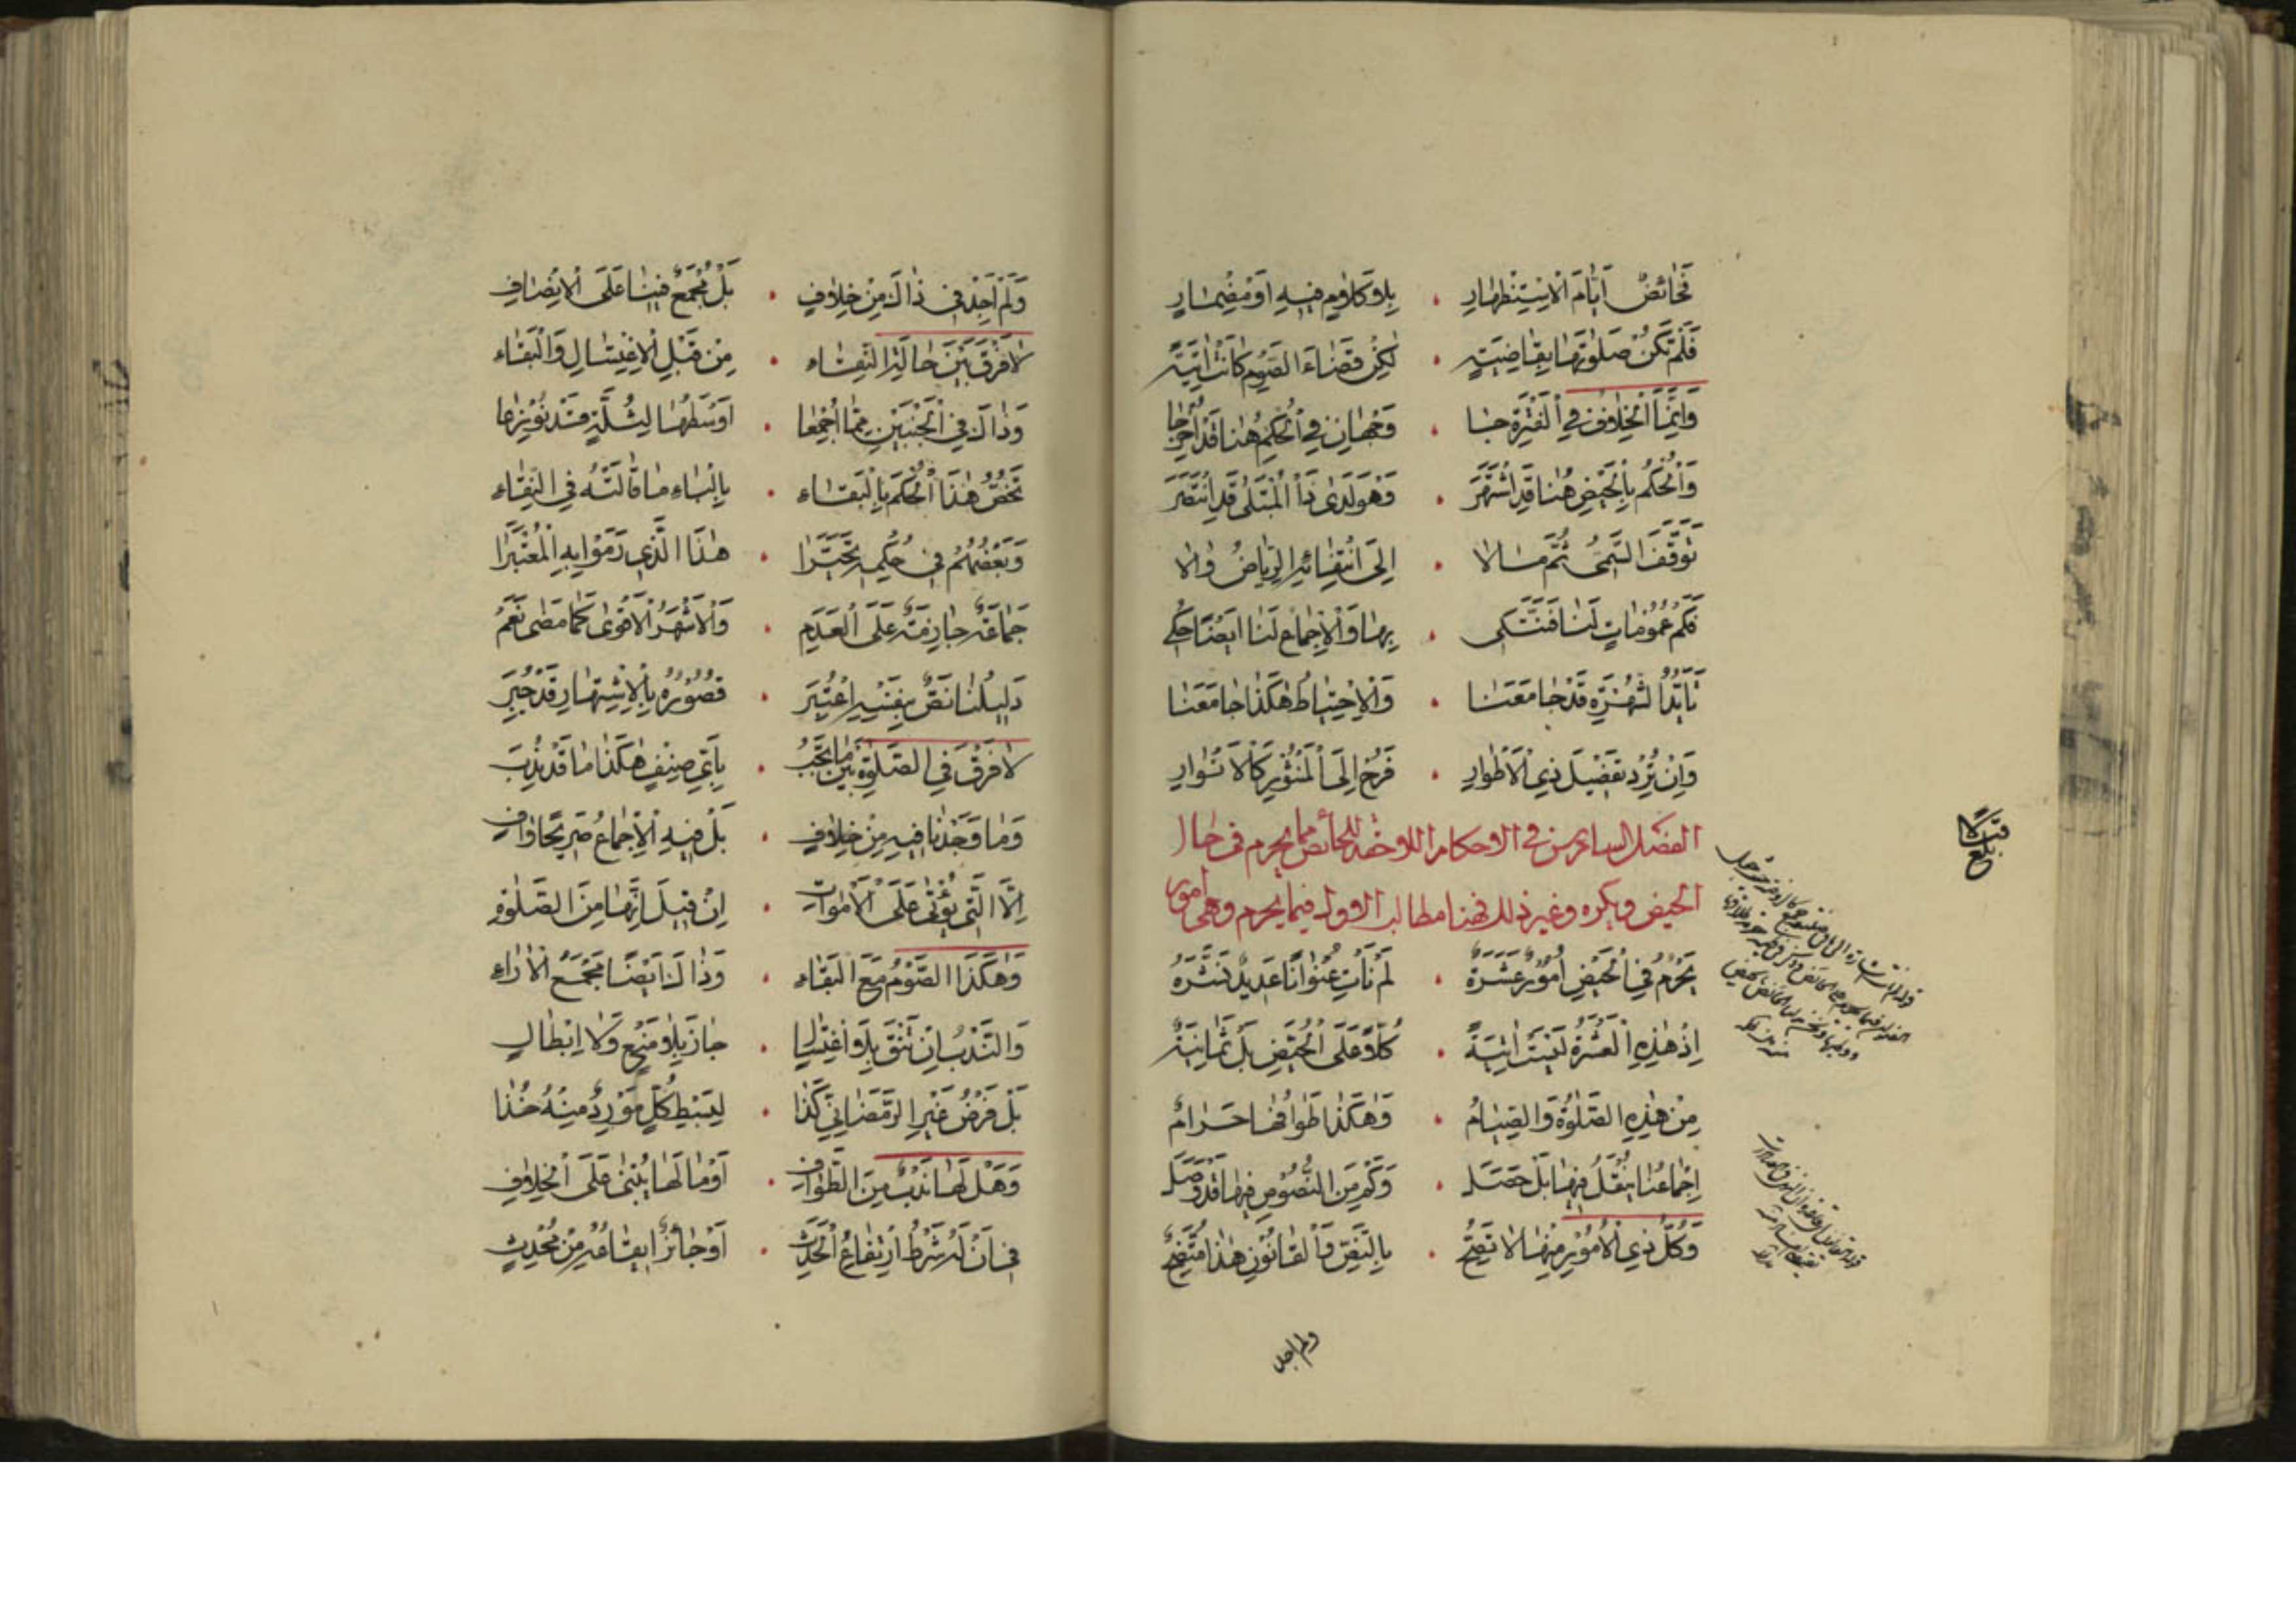 فَحَائِضٌ أَيَّامَ الْاِسْتِظْهَارِ . بِلَا كَلَامٍ فِيهِ أَوْ مِضْمَارِ
فَلَمْ تَكُنْ صَلٰوتُهَا بِقَاضِيَةٍ . لٰكِنْ قَضَاءَ الصَّوْمِ كَانَتْ آتِيَةً
وَإِنَّمَا الْخِلَافُ فِي الْفَتْرَةِ جَا . وَجْهَانِ فِي الْحُكْمِ هُنَا قَدْ أُخْرِجَا
وَالْحُكْمُ بِالْحَيْضِ هُنَا قَدِ اشْتَهَرَ . وَهْوَ لَدَى ذَا الْمُبْتَلَى قَدِ انْتَصَرَ
تَوَقَّفَ السَّمِيُّ ثُمَّ مَالَا . إِلَى انْتِفَائِهِ الرِّيَاضُ وَالَا
فَكَمْ عُمُومَاتٍ لَنَا فَنَتَّكِي . بِهَا وَالْإِجْمَاعُ لَنَا أَيْضًا حُكِي
تَأَيُّدًا لِشُهْرَةٍ قَدْ جَا مَعَنَا . وَالْاِحْتِيَاطُ هٰكَذَا جَا مَعَنَا
وَإِنْ تُرِدْ تَفْصِيلَ ذِي الْأَطْوَارِ . فَرُحْ إِلَى الْمَنْثُورِ كَالْأَنْوَارِ
الفصل السادس في الاحكام اللاحقة للحائض مما يحرم في حال
الحيض ويكره وغير ذلك فهنا مطالب الاول فيما يحرم وهي امور
يَحْرُمُ فِي الْحَيْضِ أُمُورٌ عَشَرَةٌ . لَمْ نَأْتِ عُنْوَانًا عَدِيدٌ نَشَرَهُ
إِذْ هٰذِهِ الْعَشْرَةُ لَيْسَتْ آتِيَةً . كُلًّا عَلَى الْحَيْضِ بَلْ ثَمَانِيَةٌ
مِنْ هٰذِهِ الصَّلٰوةُ وَالصِّيَامُ . وَهٰكَذَا طَوَافُهَا حَرَامٌ
إِجْمَاعُنَا يُنْقَلُ فِيهَا بَلْ حَصَلَ . وَكَمْ مِنَ النُّصُوصِ فِيهَا قَدْ وَصَلَ
وَكُلُّ ذِي الْأُمُورِ مِنْهَا لَا تَصِحُّ . بِالنَّصِّ فَالْقَانُونُ هٰذَا مُتَّضِحٌ
ولم اجد
وَلَمْ أَجِدْ فِي ذَاكَ مِنْ خِلَافٍ . بَلْ مُجْمَعٌ فِينَا عَلَى الْإِنْصَافِ
لَا فَرْقَ بَيْنَ حَالَةِ النِّسَاءِ . مِنْ قَبْلِ الْاِغْتِسَالِ وَالْبَقَاءِ
وَذَاكَ فِي الْجَنْبَيْنِ مِمَّا أُجْمِعَا . أَوْسَطُهَا لِثُلَّةٍ قَدْ نُوزِعَا
تَخُصُّ هٰذَا الْحُكْمَ بِالْبَقَاءِ . بِالْبَاءِ مَا قَالَتْهُ فِي النَّقَاءِ
وَبَعْضُهُمْ فِي حُكْمِهِ تَحَيَّرَا . هٰذَا الَّذِي رَمَوْا بِهِ الْمُعْتَبَرَا
جَمَاعَةٌ جَازِمَةٌ عَلَى الْعَدَمِ . وَالْأَشْهَرُ الْأَقْوٰى كَمَا مَضٰى نَعَمْ
دَلِيلُنَا نَصٌّ بِفَتْيَةٍ اعْتُبِرَ . قُصُورُهُ بِالْاِشْتِهَارِ قَدْ جُبِرَ
لَا فَرْقَ فِي الصَّلٰوةِ بَيْنَ مَا يَجِبُ . بِأَيِّ صِنْفٍ هٰكَذَا مَا قَدْ نُدِبَ
وَمَا وَجَدْنَا فِيهِ مِنْ خِلَافٍ . بَلْ فِيهِ الْإِجْمَاعُ صَرِيحًا وَافٍ
إِلَّا الَّتِي يُؤْتٰى عَلَى الْأَمْوَاتِ . إِنْ قِيلَ إِنَّهَا مِنَ الصَّلٰوةِ
وَهٰكَذَا الصَّوْمُ مَعَ الْبَقَاءِ . وَذَاكَ أَيْضًا مَجْمَعُ الْآرَاءِ
وَالنَّدْبُ إِنْ تَنَقَّ بِلَا اغْتِسَالٍ . جَازَ بِلَا مَنْعٍ وَلَا إِبْطَالٍ
بَلْ فَرْضُ غَيْرِ الرَّمَضَانِيِّ كَذَا . لِبَسْطِ كُلٍّ مَوْرِدٌ مِنْهُ خُذَا
وَهَلْ لَهَا نَدْبٌ مِنَ الطَّوَافِ . أَوْ مَا لَهَا يُبْنٰى عَلَى الْخِلَافِ
فِي أَنَّهُ شَرْطُ ارْتِفَاعِ الْحَدَثِ . أَوْ جَائِزٌ إِيقَاعُهُ مِنْ مُحْدِثٍ